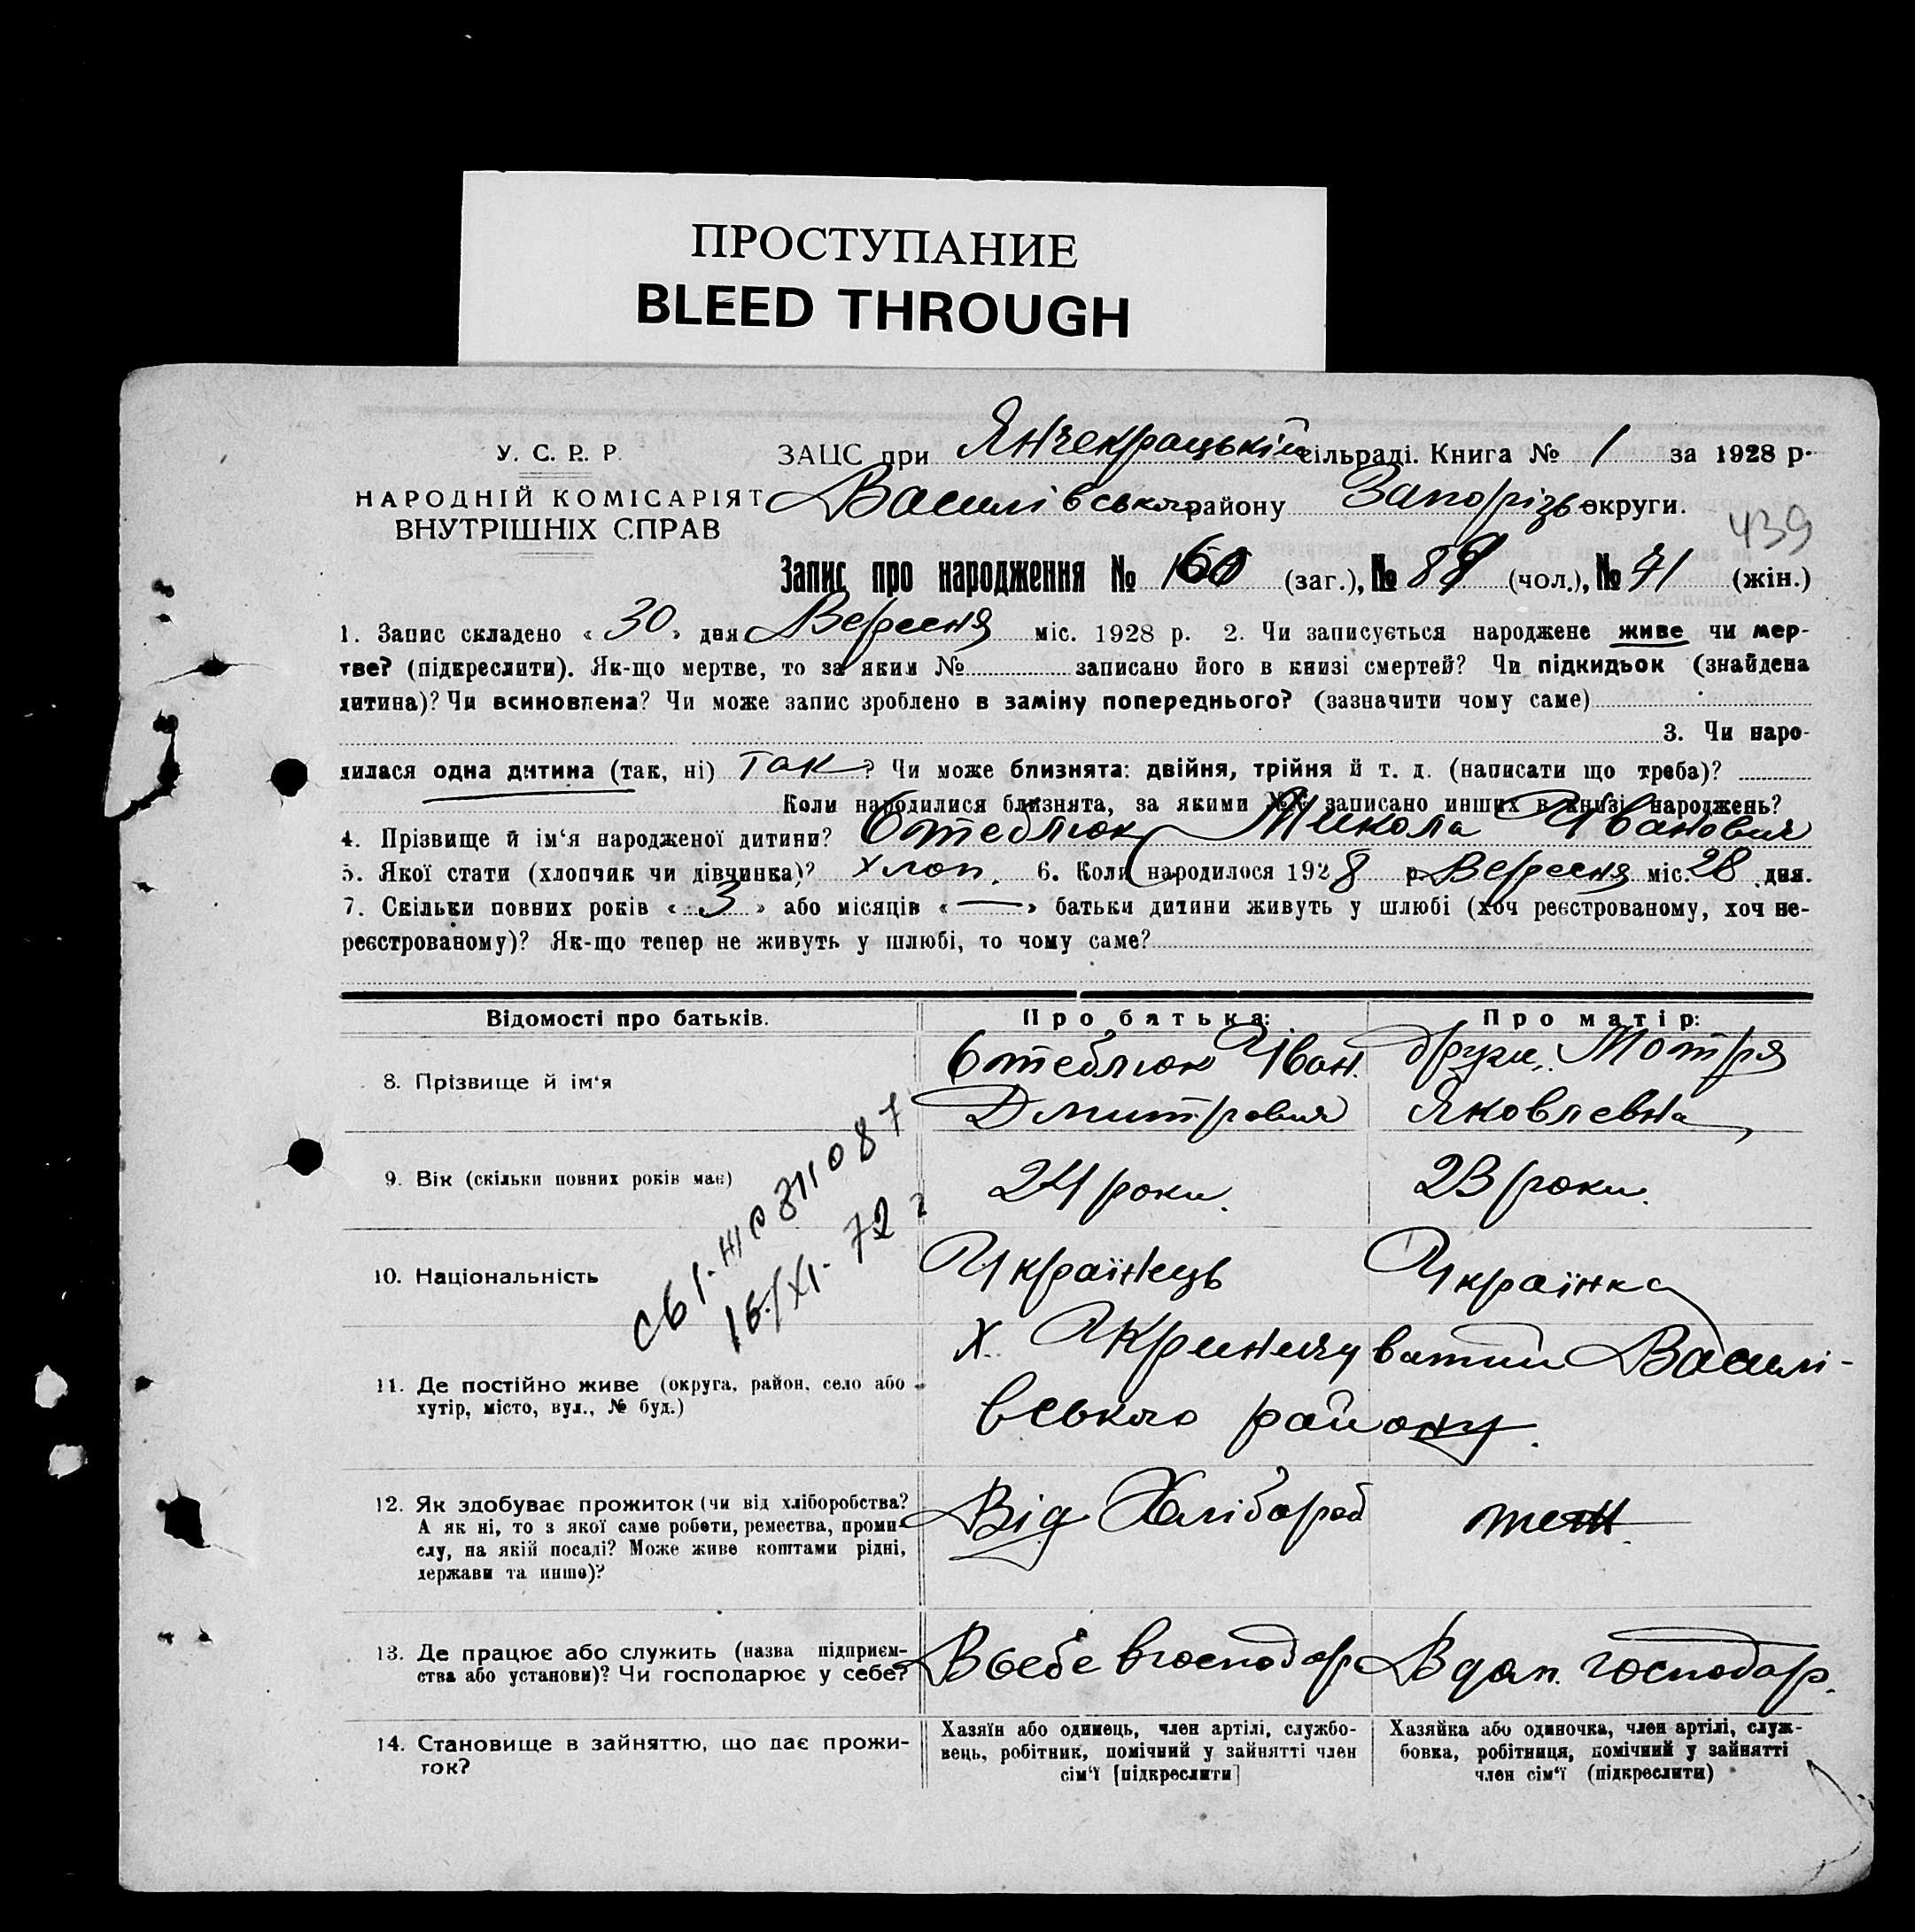 ПРОСТУПАНИЕ
BLEED THROUGH
У. С. Р. Р.
ЗАЦС при Янчекрацькій сільраді. Книга № 1 за 1928 р.
НАРОДНІЙ КОМІСАРІЯТ
ВНУТРІШНІХ СПРАВ
Василівського району Запорізь округи.
439
Запис про народження № 160 (заг.), № 89 (чол.), № 71 (жін.)
1. Запис складено « 30 » дня Вересня міс. 1928 р. 2. Чи записується народжене живе чи мер-
тве? (підкреслити). Як-що мертве, то за яким № записано його в книзі смертей? Чи підкидьок (знайдена
дитина)? Чи всиновлена? Чи може запис зроблено в заміну попереднього? (зазначити чому саме)
3. Чи наро-
дилася одна дитина (так, ні) Так ? Чи може близнята: двійня, трійня й т. д. (написати що треба)?
Коли народилися близнята, за якими №№ записано инших в книзі народжень?
4. Прізвище й ім‘я народженої дитини? Стеблюк Микола Іванович
5. Якої стати (хлопчик чи дівчинка)? хлоп. 6. Коли народилося 1928 р. Вересня міс. 28 дня.
7. Скільки повних років « 3 » або місяців « — » батьки дитини живуть у шлюбі (хоч реєстрованому, хоч не-
реєстрованому)? Як-що тепер не живуть у шлюбі, то чому саме?
Відомості про батьків.
Про батька:
Про матір:
8. Прізвище й ім‘я
Стеблюк Іван
Дмитрович
друж. Мотря
Яковлевна
9. Вік (скільки повних років має)
24 роки.
23 роки.
10. Національність
Українець
Українка
16/XI. 72 г
11. Де постійно живе (округа, район, село або
хутір, місто, вул., № буд.)
х. Василі-
вського району.
12. Як здобуває прожиток (чи від хліборобства?
А як ні, то з якої саме роботи, ремества, проми-
слу, на якій посаді? Може живе коштами рідні,
держави та инше)?
Від Хлібороб
теж
13. Де працює або служить (назва підприєм-
ства або установи)? Чи господарює у себе?
В себе в господар
В доп. господар.
14. Становище в зайняттю, що дає прожи-
ток?
Хазяїн або одинець, член артілі, службо-
вець, робітник, помічний у зайнятті член
сім‘ї [підкреслити]
Хазяйка або одиночка, член артілі, служ-
бовка, робітниця, помічний у зайнятті
член сім‘ї (підкреслити)